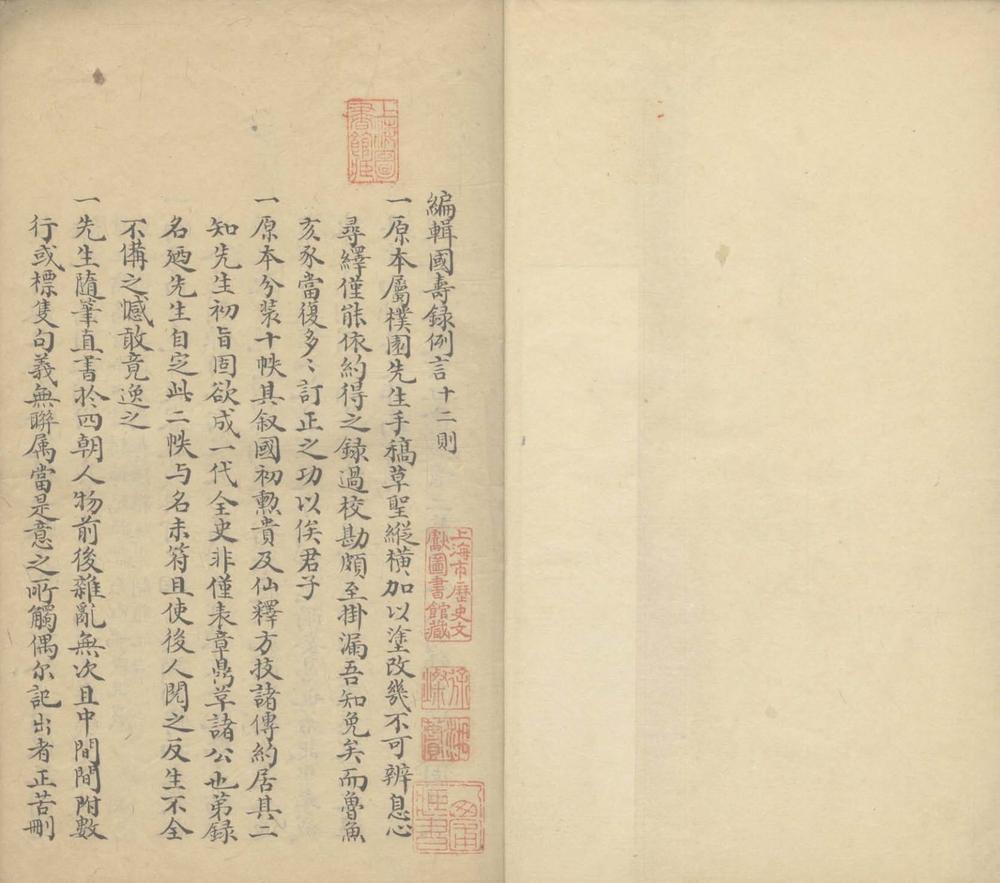 編輯國壽録例言十二則
一原本屬樸園先生手稿草聖縱横加以塗改幾不可辨息心
尋繹僅能依約得之録過校勘頗至掛漏吾知免矣而魯魚
亥豕當復多〻訂正之功以俟君子
一原本分装十帙具叙國初勲貴及仙釋方技諸傳約居其二
知先生初旨固欲成一代全史非僅表章勝草諸公也第録
名廼先生自定此二帙与名未符且使後人閲之反生不全
不備之憾敢竟逸之
一先生隨筆直書於四朝人物前後雜亂無次且中間間附數
行或標隻句義無聯属當是意之所觸偶尔記出者正苦刪
上海圖書館藏
上海市歷史文獻圖書館藏